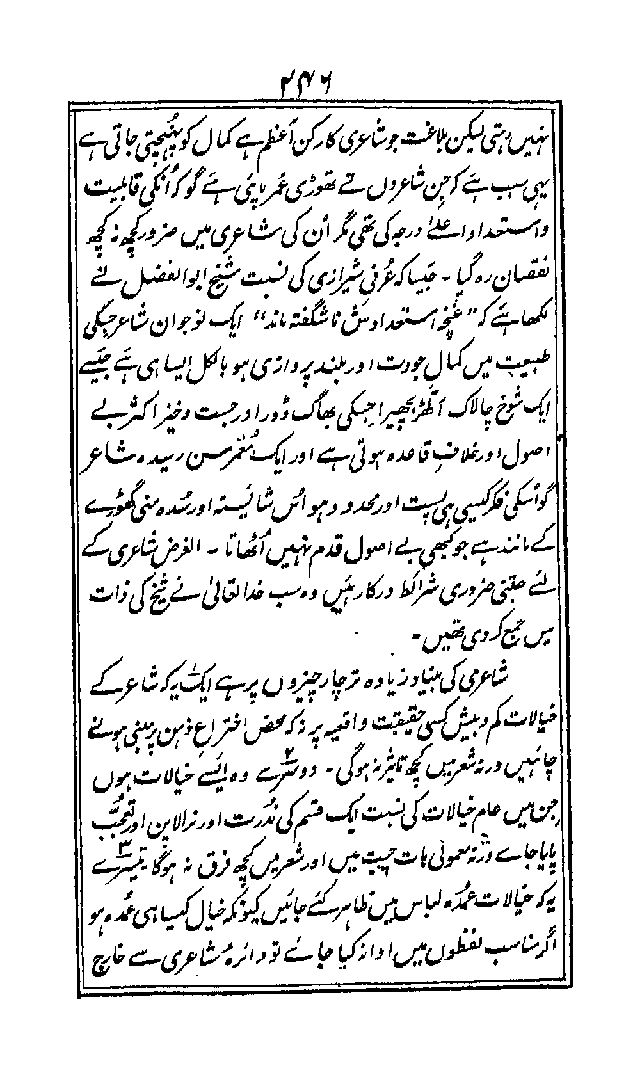 ۲۴۶
نہیں رہتی لیکن بلاغت جو شاعری کا رکن اعظم ہے کمال کو پہنچتی جاتی ہے
یہی سبب ہے کہ جن شاعروں نے تھوڑی عمر پائی ہے گو کہ اُنکی قابلیت
واستعداد اعلےٰ درجہ کی تھی مگر اُن کی شاعری میں ضرور کچھ نہ کچھ
نقصان رہ گیا۔ جیسا کہ عُرفی شیرازی کی نسبت شیخ ابوالفضل نے
لکھا ہے کہ "غنچۂ استعدادش ناشگفتہ ماند" ایک نوجوان شاعر جسکی
طبیعت میں کمال جودت اور بلند پروازی ہو بالکل ایسا ہی ہے جیسے
ایک شوخ چالاک الھڑ بچھیرا جسکی بھاگ دوڑ اور جست وخیز اکثر بے
اصول اور خلافِ قاعدہ ہوتی ہے اور ایک مُعمّر سن رسیدہ شاعر
گو اُسکی فکر کیسی ہی پست اور محدود ہو اُس شائیستہ اور سُدہ منی گھوڑے
کے مانند ہے جو کبھی بے اصول قدم نہیں اُٹھاتا۔ الغرض شاعری کے
لئے جتنی ضروری شرائط درکار ہیں وہ سب خدا تعالیٰ نے شیخ کی ذات
میں جمع کر دی تھیں۔
شاعری کی بنیاد زیادہ تر چار چیزوں پر ہے ایک یہ کہ شاعر کے
خیالات کم و بیش کسی حقیقت واقعیہ پر نہ کہ محض اختراعِ ذہن پر مبنی ہونے
چاہئیں ورنہ شعر میں کچھ تاثیر نہ ہوگی۔ دوسرے ۲ وہ ایسے خیالات ہوں
جن میں عام خیالات کی نسبت ایک قسم کی نُدرت اور نرالاپن اور تعجّب
پایا جاے ورنہ معمولی بات چیت میں اور شعر میں کچھ فرق نہ ہوگا تیسرے ۳
یہ کہ خیالات عمدہ لباس میں ظاہر کئے جائیں کیونکہ خیال کیسا ہی عُمدہ ہو
اگر مناسب لفظوں میں ادا نہ کیا جائے تو دائرۂ شاعری سے خارج